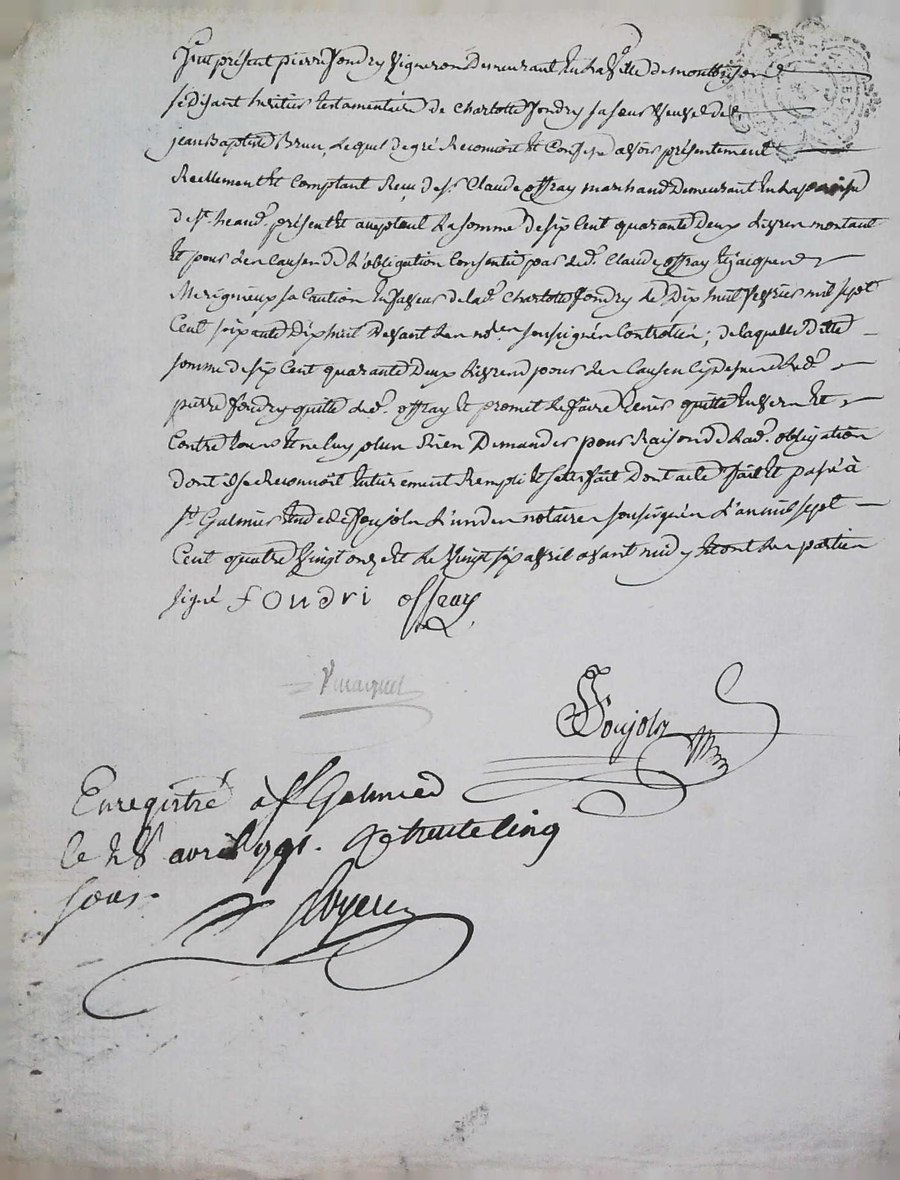 Fut présent pierre fondry vigneron demeurant en la ville de montbrison
se disant heritier testamentaire de charlotte fondry sa soeur veuve de
jean Baptiste Brun, Lequel de gré Reconnoit et Confesse avoir présentement
Reellement et Comptant Reçu de sr. Claude offray marchand demeurant en la paroisse
de st. heand, présent et acceptant La somme de six Cent quarante deux Livres montant
et pour les Causes de L'obligation Consentie par led. Claude offray et jacques
Merignieux sa Caution en faveur de lad. charlotte fondry Le Dix huit fevrier mil sept
Cent soixante Dix huit devant Les nores. soussignés Controllée; de laquelle ditte
somme de six Cent quarante deux Livres et pour les Causes cy dessus Led.
pierre fondry quitte led. offray et promet le faire tenir quitte envers et
Contre tous et ne luy plus Rien Demander pour Raison de lad. obligation
dont il se Reconnoit entierement Rempli et satisfait dont acte fait et passé à
st. Galmier Etude de Foujols L'un des notaires soussignés L'an mil sept
Cent quatre vingt onze et Le vingt six avril avant midy et ont Les parties
signé fondri offray
Foujols
Enregistré à st Galmier
le 28 avril 1791. Rs trente cinq
sous.